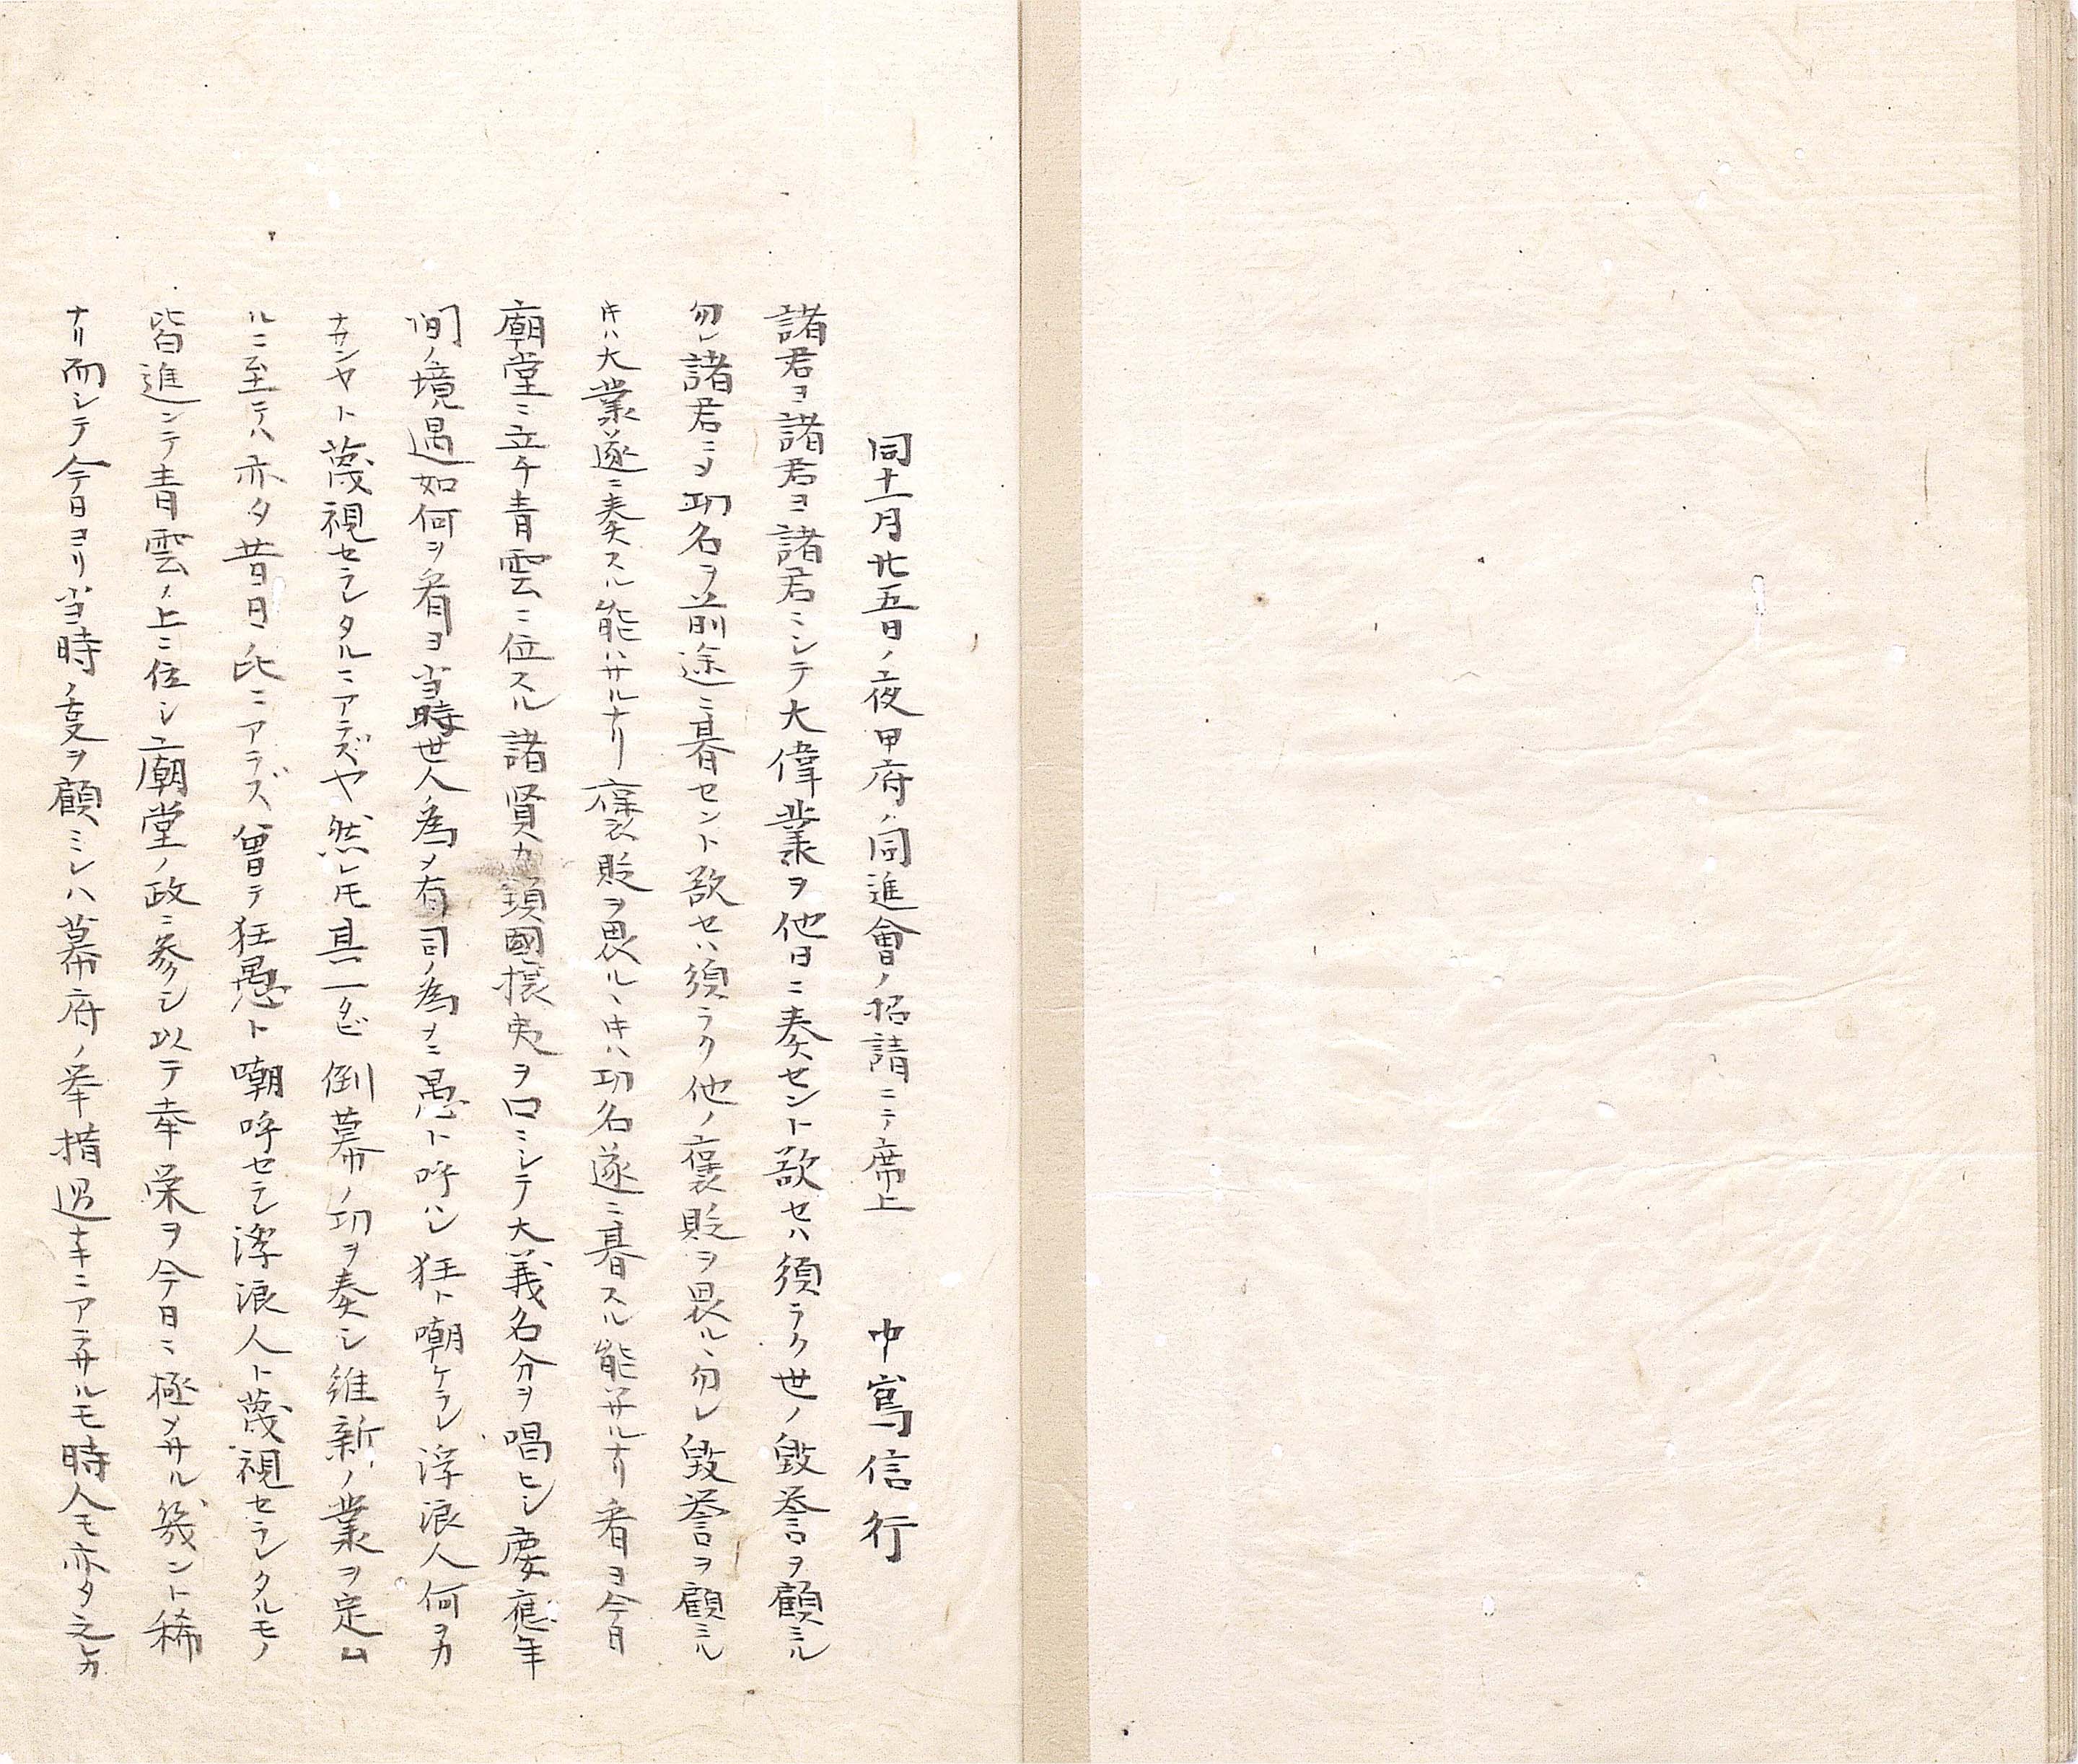 同十一月廿五日ノ夜甲府ノ同進會ノ招請ニテ席上　中島信行
諸君ヨ諸君ヨ諸君ニシテ大偉業ヲ他日ニ奏セント欲セハ須ラク世ノ毀誉ヲ顧ミル
勿レ諸君ニシテ功名ヲ前途ニ碁セント欲セハ須ラク他ノ褒貶ヲ畏ルヽ勿レ毀誉ヲ顧ミル
ﾄｷハ大業遂ニ奏スル能ハサルナリ褒貶ヲ畏ルヽﾄｷハ功名遂ニ碁スル能ハサルナリ看ヨ今日
廟堂ニ立チ青雲ニ位スル諸賢カ鎖國攘夷ヲ口ニシテ大義名分ヲ唱ヒシ慶應年
間ノ境遇如何ヲ看ヨ当時世人ノ為メ有司ノ為メニ愚ト呼ハレ狂ト嘲ケラレ浮浪人何ヲカ
ナサンヤト蔑視セラレタルニアラズヤ然レ𪜈其一タビ倒幕ノ功ヲ奏シ維新ノ業ヲ定ム
ルニ至テハ亦タ昔日ノ比ニアラズ曾テ狂愚ト嘲呼セラレ浮浪人ト蔑視セラレタルモノ
皆進ンテ青雲ノ上ニ位シ廟堂ノ政ニ参シ以テ幸栄ヲ今日ニ極メサル幾ント稀
ナリ而シテ今日ヨリ当時ノ変ヲ顧ミレハ幕府ノ挙措過ナキニアラサルモ時人モ亦タ之カ